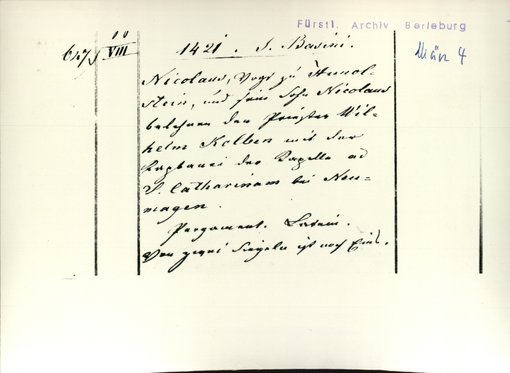 Fürstl. Archiv Berleburg
1421. S. Basini.
März 4
VIII
Nicolaus, Vogt zu Hunol-
stein, und sein Sohn Nicolaus
belehnen den Priester Wil-
helm Kolben mit der
der Capelle ad
S. Catharinam bei Neu-
magen.
Pergament. Latein.
Von zwei Siegeln ist noch Eins.